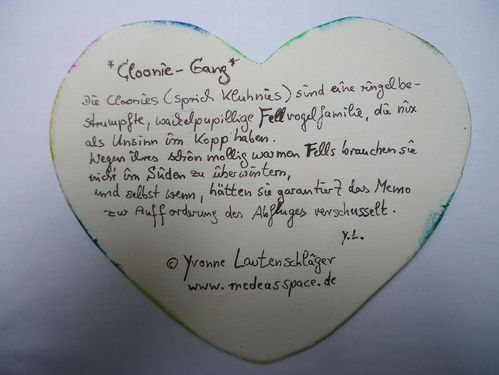 *Cloonie-Gang*
Die Cloonies (sprich Kluhnies) sind eine ringelbe-
strumpfte, wackelpupillige Fellvogelfamilie, die nix
als Unsinn im Kopp haben.
Wegen ihres schön mollig warmen Fells brauchen sie
nicht im Süden zu überwintern,
und selbst wenn, hätten sie garantiert das Memo
zur Aufforderung des Abfluges verschusselt.
Y.L.
© Yvonne Lautenschläger
www.medeasspace.de